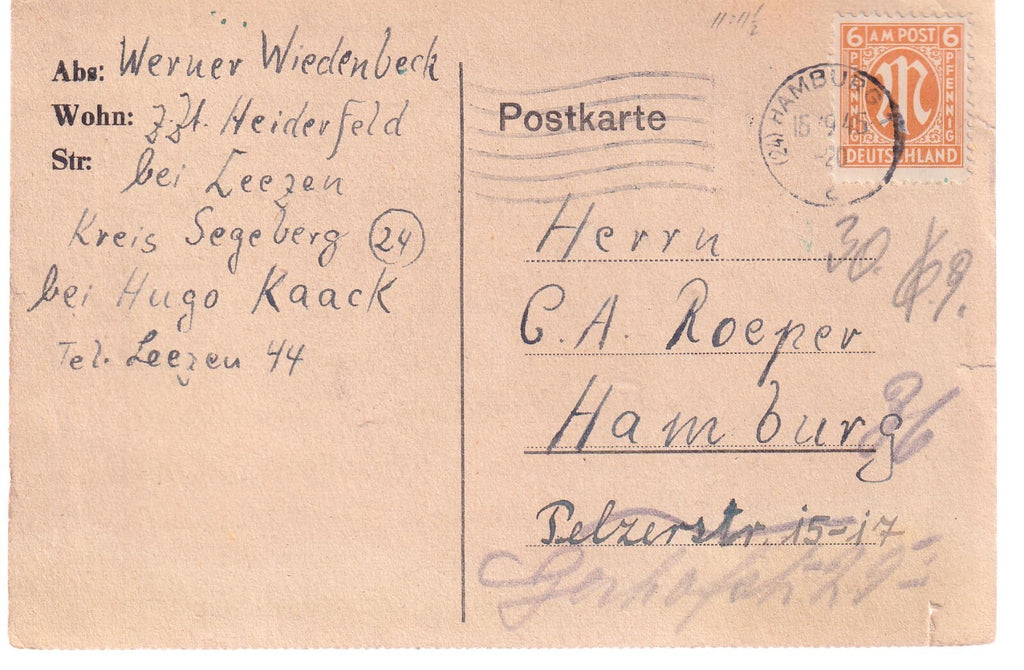 Abs: Werner Wiedenbeck
Wohn: z. Zt. Heiderfeld
Str: bei Leezen
Kreis Segeberg (24)
bei Hugo Kaack
Tel. Leezen 44
11:11½
Postkarte
6 AM POST 6
PFENNIG PFENNIG
M
DEUTSCHLAND
(24) HAMBURG
Herrn
30.
C. A. Roeper
Hamburg
36
Pelzerstr. 15-17